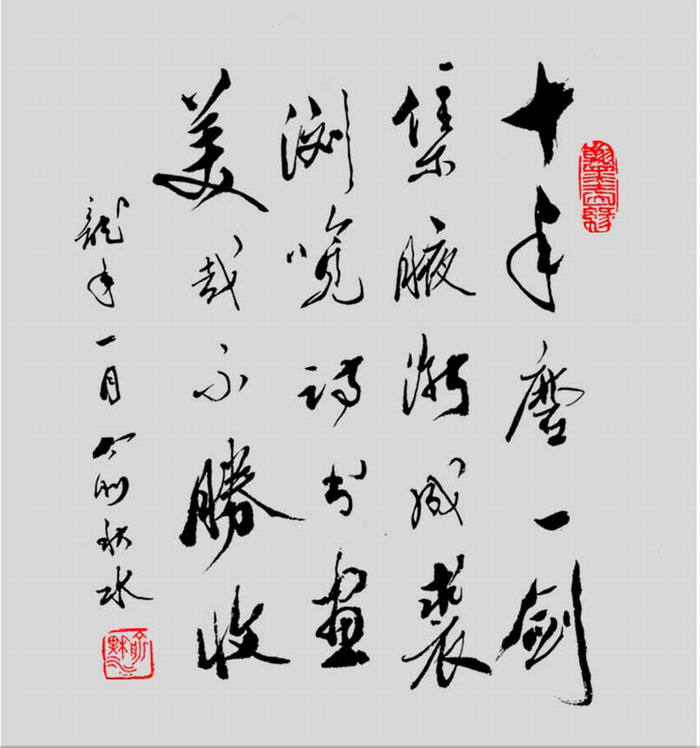 十年磨一劍
集腋漸成裘
浏覽詩書畫
美哉不勝收
龍年一月俞秋水